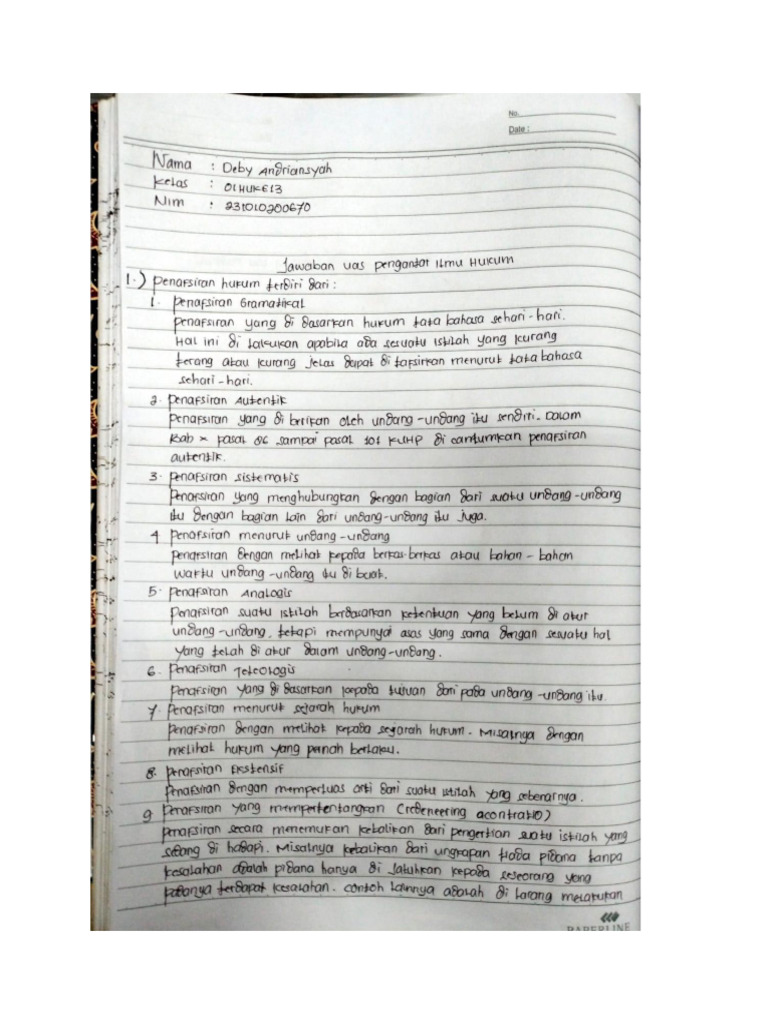 No.
Date :
Nama : Deby Andriansyah
Kelas : 01HUKE13
Nim : 231010200670
Jawaban uas pengantar Ilmu Hukum
1.) Penafsiran hukum terdiri dari :
1. Penafsiran Gramatikal
Penafsiran yang di dasarkan hukum tata bahasa sehari-hari.
Hal ini di lakukan apabila ada sesuatu istilah yang kurang
terang atau kurang jelas dapat di tafsirkan menurut tata bahasa
sehari-hari.
2. Penafsiran Autentik
Penafsiran yang di berikan oleh undang-undang itu sendiri. Dalam
Bab x pasal 86 sampai pasal 101 KUHP di cantumkan penafsiran
autentik.
3. Penafsiran sistematis
Penafsiran yang menghubungkan dengan bagian dari suatu undang-undang
itu dengan bagian lain dari undang-undang itu juga.
4 Penafsiran menurut undang-undang
Penafsiran dengan melihat kepada berkas-berkas atau bahan-bahan
waktu undang-undang itu di buat.
5. Penafsiran Analogis
Penafsiran suatu istilah berdasarkan ketentuan yang belum di atur
undang-undang, tetapi mempunyai asas yang sama dengan sesuatu hal
yang telah di atur dalam undang-undang.
6. Penafsiran Teleologis
Penafsiran yang di dasarkan kepada tujuan dari pada undang-undang itu.
7. Penafsiran menurut sejarah hukum
Penafsiran dengan melihat kepada sejarah hukum. Misalnya dengan
melihat hukum yang pernah berlaku.
8. Penafsiran Ekstensif
Penafsiran dengan memperluas arti dari suatu istilah yang sebenarnya.
9 Penafsiran yang mempertentangkan (redeneering acontratio)
Penafsiran secara menemukan kebalikan dari pengertian suatu istilah yang
sedang di hadapi. Misalnya kebalikan dari ungkapan tiada pidana tanpa
kesalahan adalah pidana hanya di jatuhkan kepada seseorang yang
padanya terdapat kesalahan. contoh lainnya adalah di larang melakukan
PAPERLINE